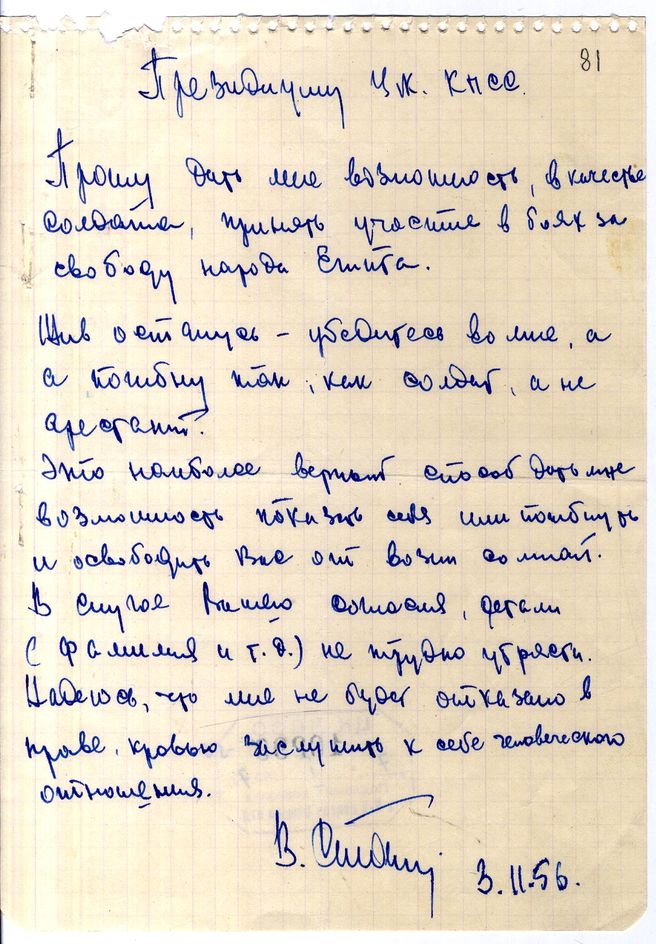 81
Президиуму ЦК. КПСС.
Прошу дать мне возможность, в качестве
солдата, принять участие в боях за
свободу народа Египта.
Жив останусь – убедитесь во мне, а
а погибну так, как солдат, а не
арестант.
Это наиболее верный способ дать мне
возможность показать себя или погибнуть
и освободить Вас от возни со мной.
В случае Вашего согласия, детали
(фамилия и т.д.) не трудно утрясти.
Надеюсь, что мне не будет отказано в
праве, кровью заслужить к себе человеческого
отношения.
В. Сталин
3.11.56.